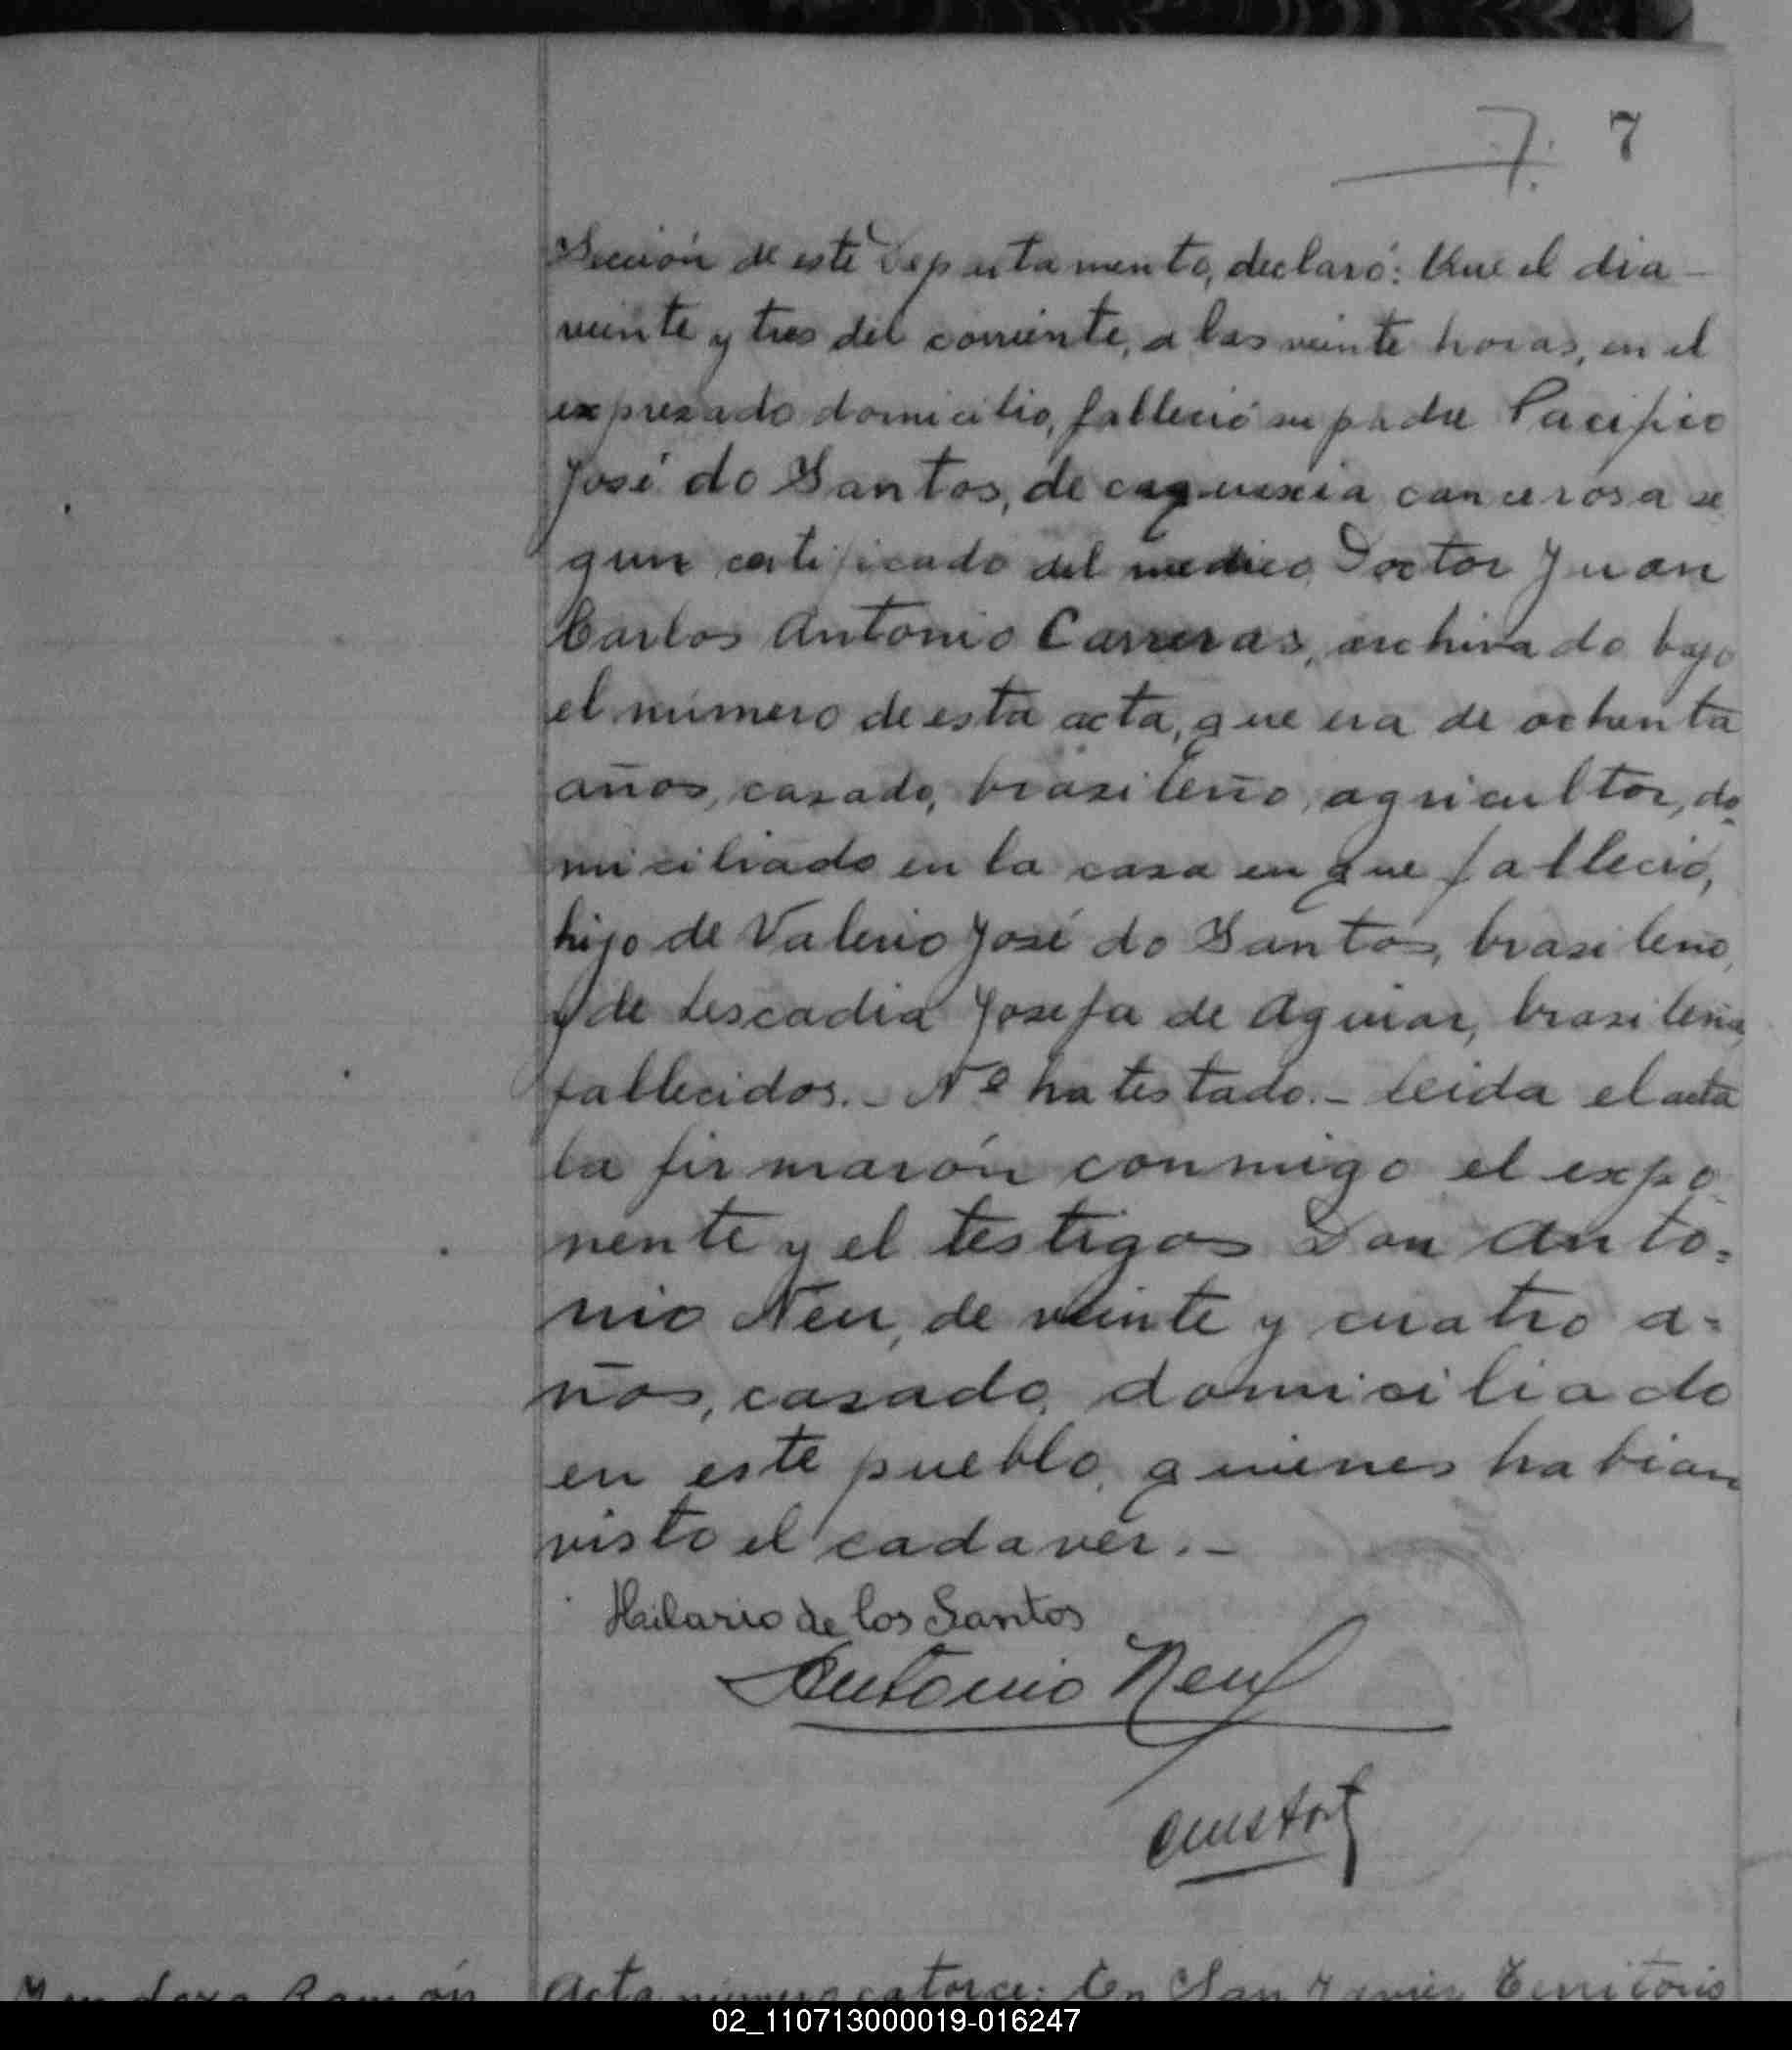 7. 7
Sección de este Departamento, declaró: Que el dia
veinte y tres del corriente, a las veinte horas, en el
expresado domicilio, falleció su padre Pacifico
José do Santos, de caquexia cancerosa se
gun certificado del medico Doctor Juan
Carlos Antonio Carreras, archivado bajo
el número de esta acta, que era de ochenta
años, casado, brasileño, agricultor, do
miciliado en la casa en que falleció,
hijo de Valerio José do Santos, brasileño,
y de Lescadia Josefa de Aguiar, brasileña,
fallecidos.- No ha testado.- Leida el acta
la firmarón conmigo el expo
nente y el testigos Don Anto=
nio Neu, de veinte y cuatro a=
ños, casado, domiciliado
en este pueblo, quienes habian
visto el cadaver.-
Hilario de los Santos
Antonio Neu
Ramón
Acta número catorce: En San Javier Territorio
02_110713000019-016247